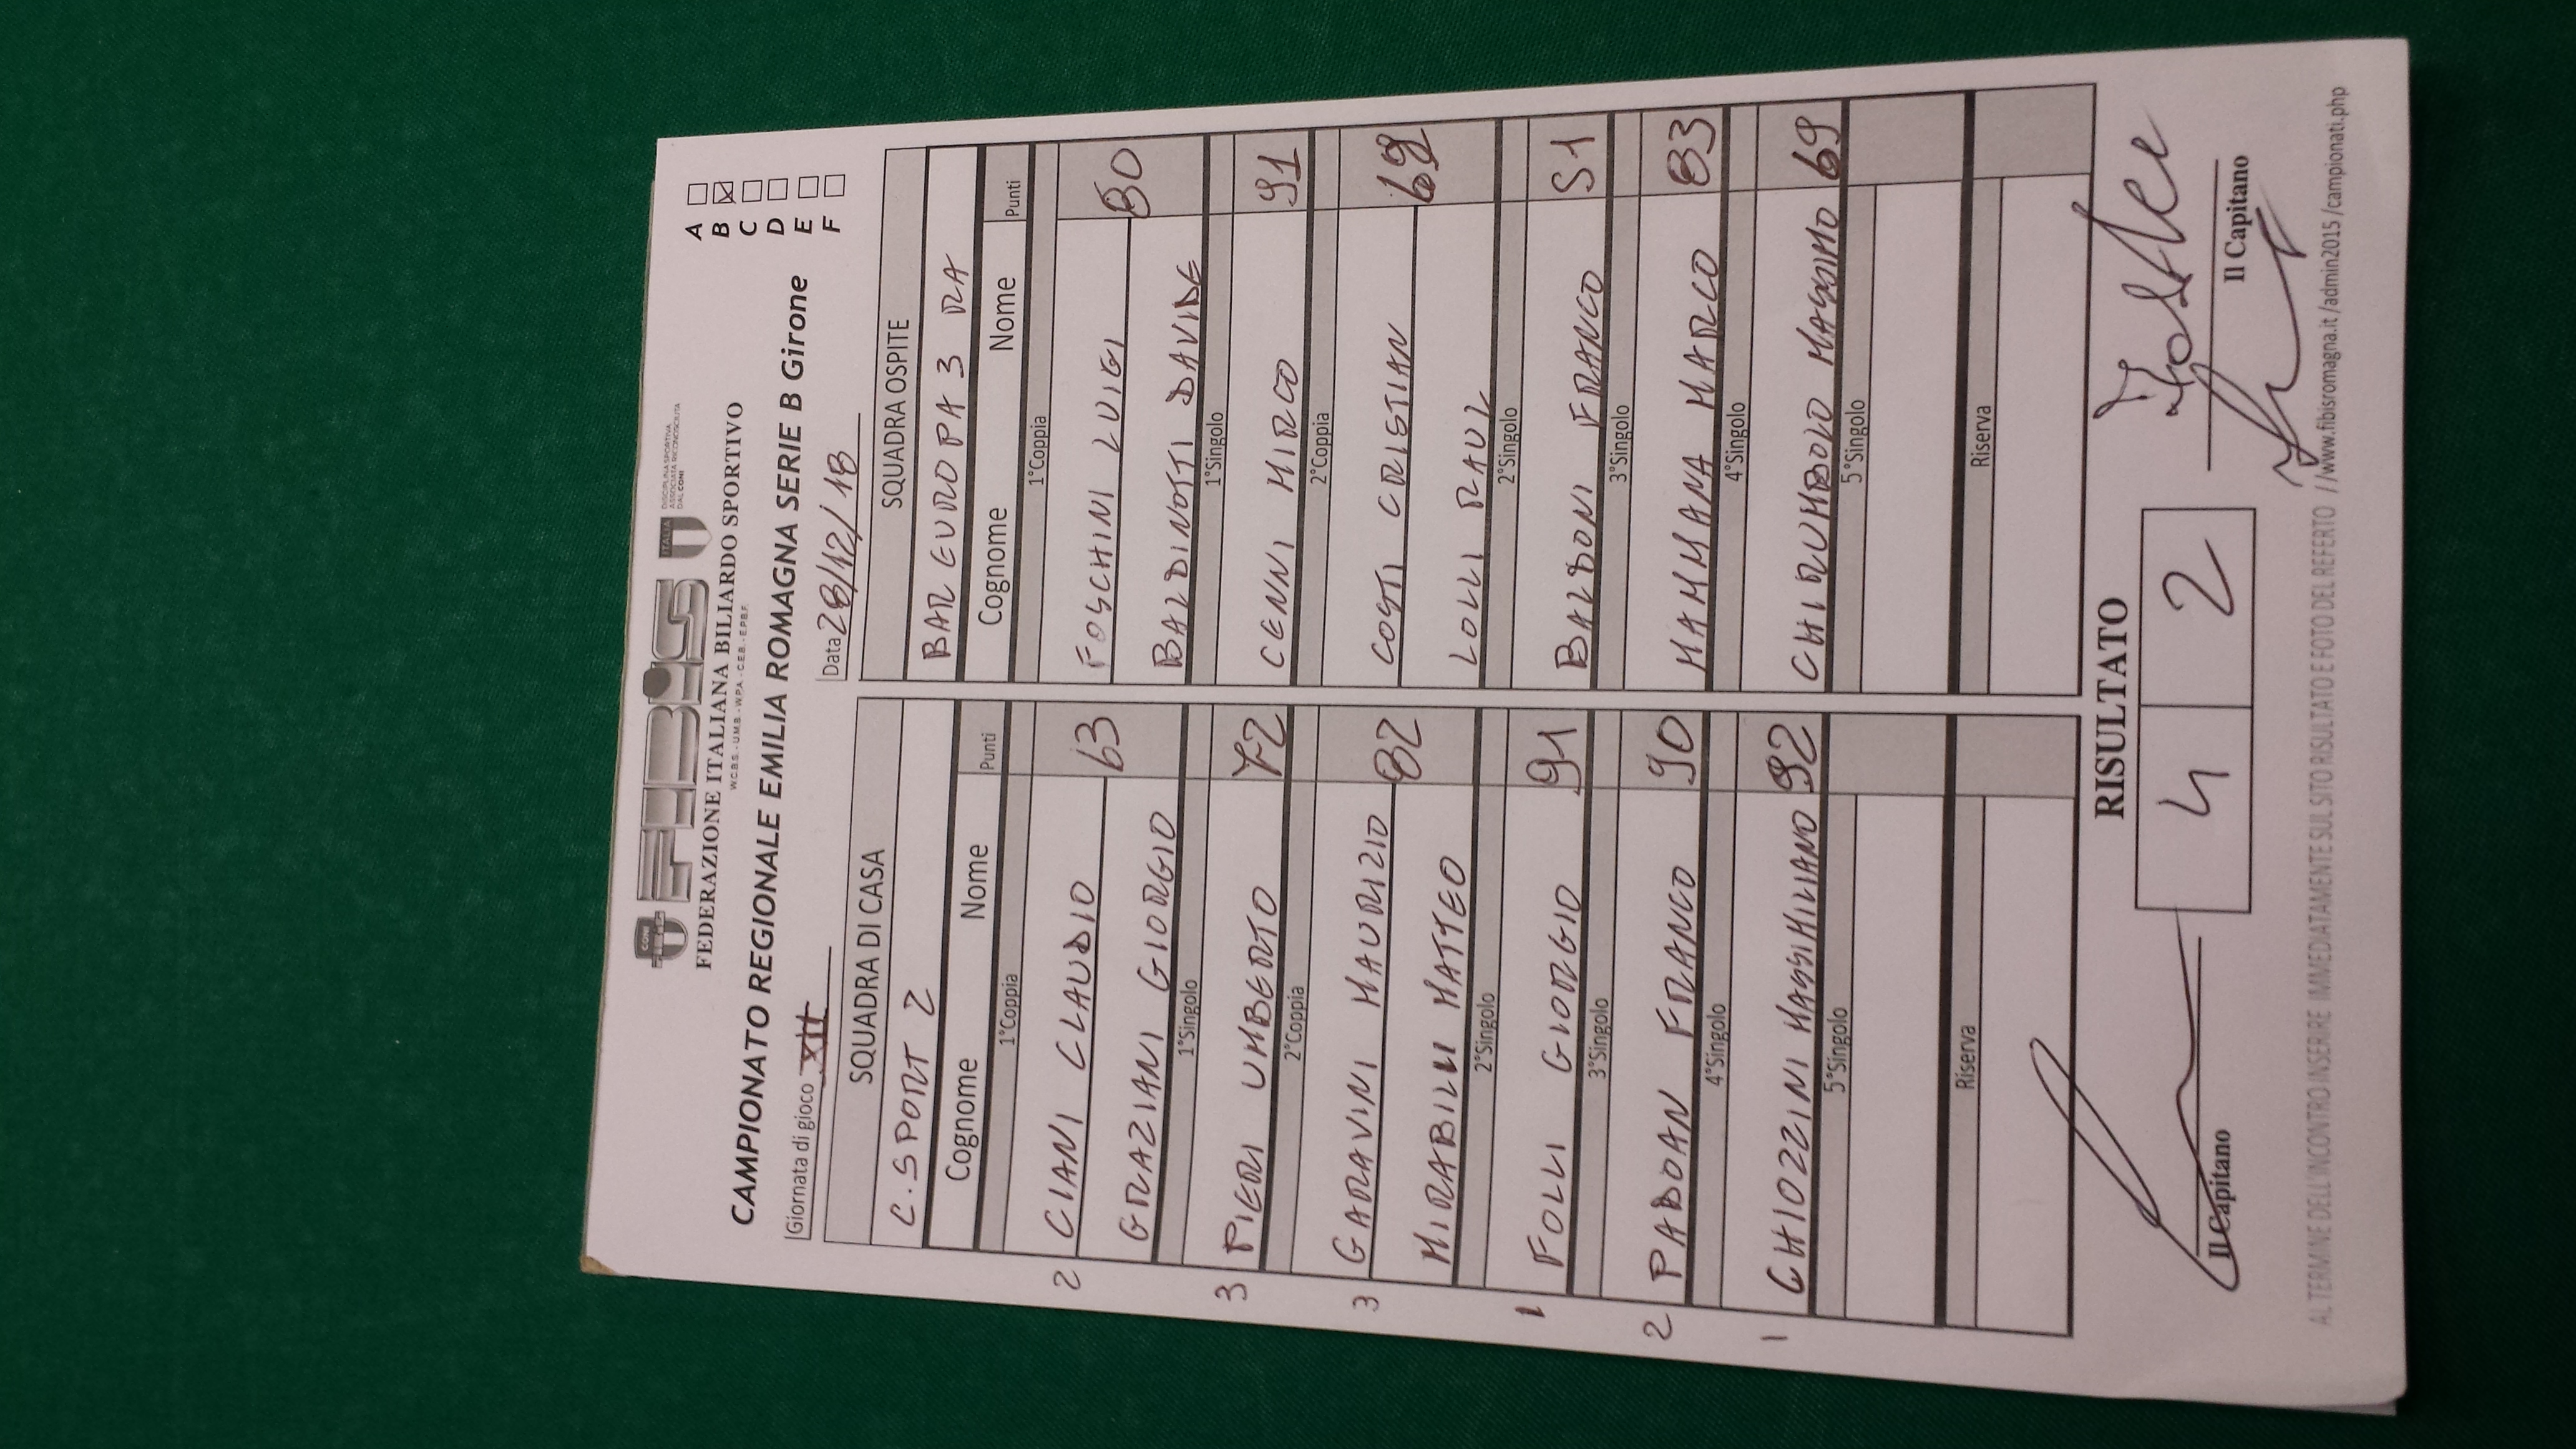 CONI
FIBIS
ITALIA
DISCIPLINA SPORTIVA
ASSOCIATA RICONOSCIUTA
DAL CONI
FEDERAZIONE ITALIANA BILIARDO SPORTIVO
W.C.B.S. - U.M.B. - W.P.A. - C.E.B. - E.P.B.F.
CAMPIONATO REGIONALE EMILIA ROMAGNA SERIE B Girone
A
B
C
D
E
F
Giornata di gioco XII
Data 28/12/18
SQUADRA DI CASA
SQUADRA OSPITE
C. SPORT 2
BAR EUROPA 3 RA
Cognome Nome Punti
Cognome Nome Punti
1°Coppia
1°Coppia
2 CIANI CLAUDIO 63
FOSCHINI LUIGI 80
GRAZIANI GIORGIO
BALDINOTTI DAVIDE
1°Singolo
1°Singolo
3 PIERI UMBERTO 72
CENNI MIRCO 91
2°Coppia
2°Coppia
3 GARAVINI MAURIZIO 82
COSTI CRISTIAN 69
MIRABILII MATTEO
LOLLI RAUL
2°Singolo
2°Singolo
1 FOLLI GIORGIO 91
BALBONI FRANCO 51
3°Singolo
3°Singolo
2 PADOAN FRANCO 90
MAMMANA MARCO 83
4°Singolo
4°Singolo
1 CHIOZZINI MASSIMILIANO 92
CHIRUMBOLO MASSIMO 69
5°Singolo
5°Singolo
Riserva
Riserva
RISULTATO
4 2
Il Capitano
Il Capitano
AL TERMINE DELL'INCONTRO INSERIRE IMMEDIATAMENTE SUL SITO RISULTATO E FOTO DEL REFERTO //www.fibisromagna.it /admin2015 /campionati.php